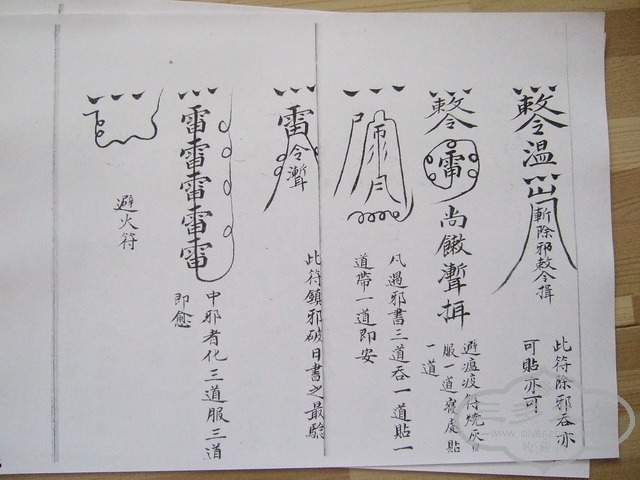 敕令溫
斬除邪敕令揖
此符除邪吞亦
可貼亦可
敕令
雷
尚䤈漸揖
避瘟疫符燒灰
服一道寢處貼
一道
凡遇邪書三道吞一道貼一
道帶一道即安
雷
令漸
此符鎮邪破日書之最驗
雷雷雷雷雷
中邪者化三道服三道
即愈
避火符